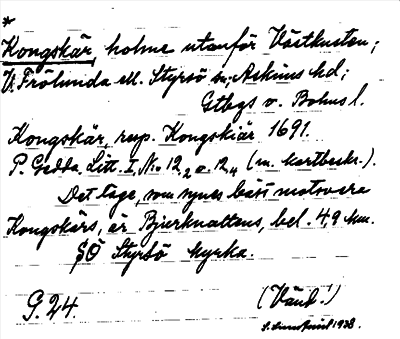 *
Kongskär, holme utanför Västkusten;
V. Frölunda ell. Styrsö sn, Askims hd;
Gtbgs o. Bohusl.
Kongskär, resp. Kongskiär 1691.
P. Gedda. Litt. I, No 12 2 o. 12 4 (m. kortbeskr.).
Det läge, som synes bäst motsvara
Kongskärs, är Bjerknattens, bel. 4,9 km.
SÖ Styrsö kyrka.
G. 24. (Vänd!)
1938.